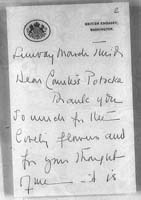 2
BRITISH EMBASSY,
WASHINGTON.
Sunday March
Dear Countess Potocka
Thank you
so much for the
lovely flowers and
for your thought
of me — it is